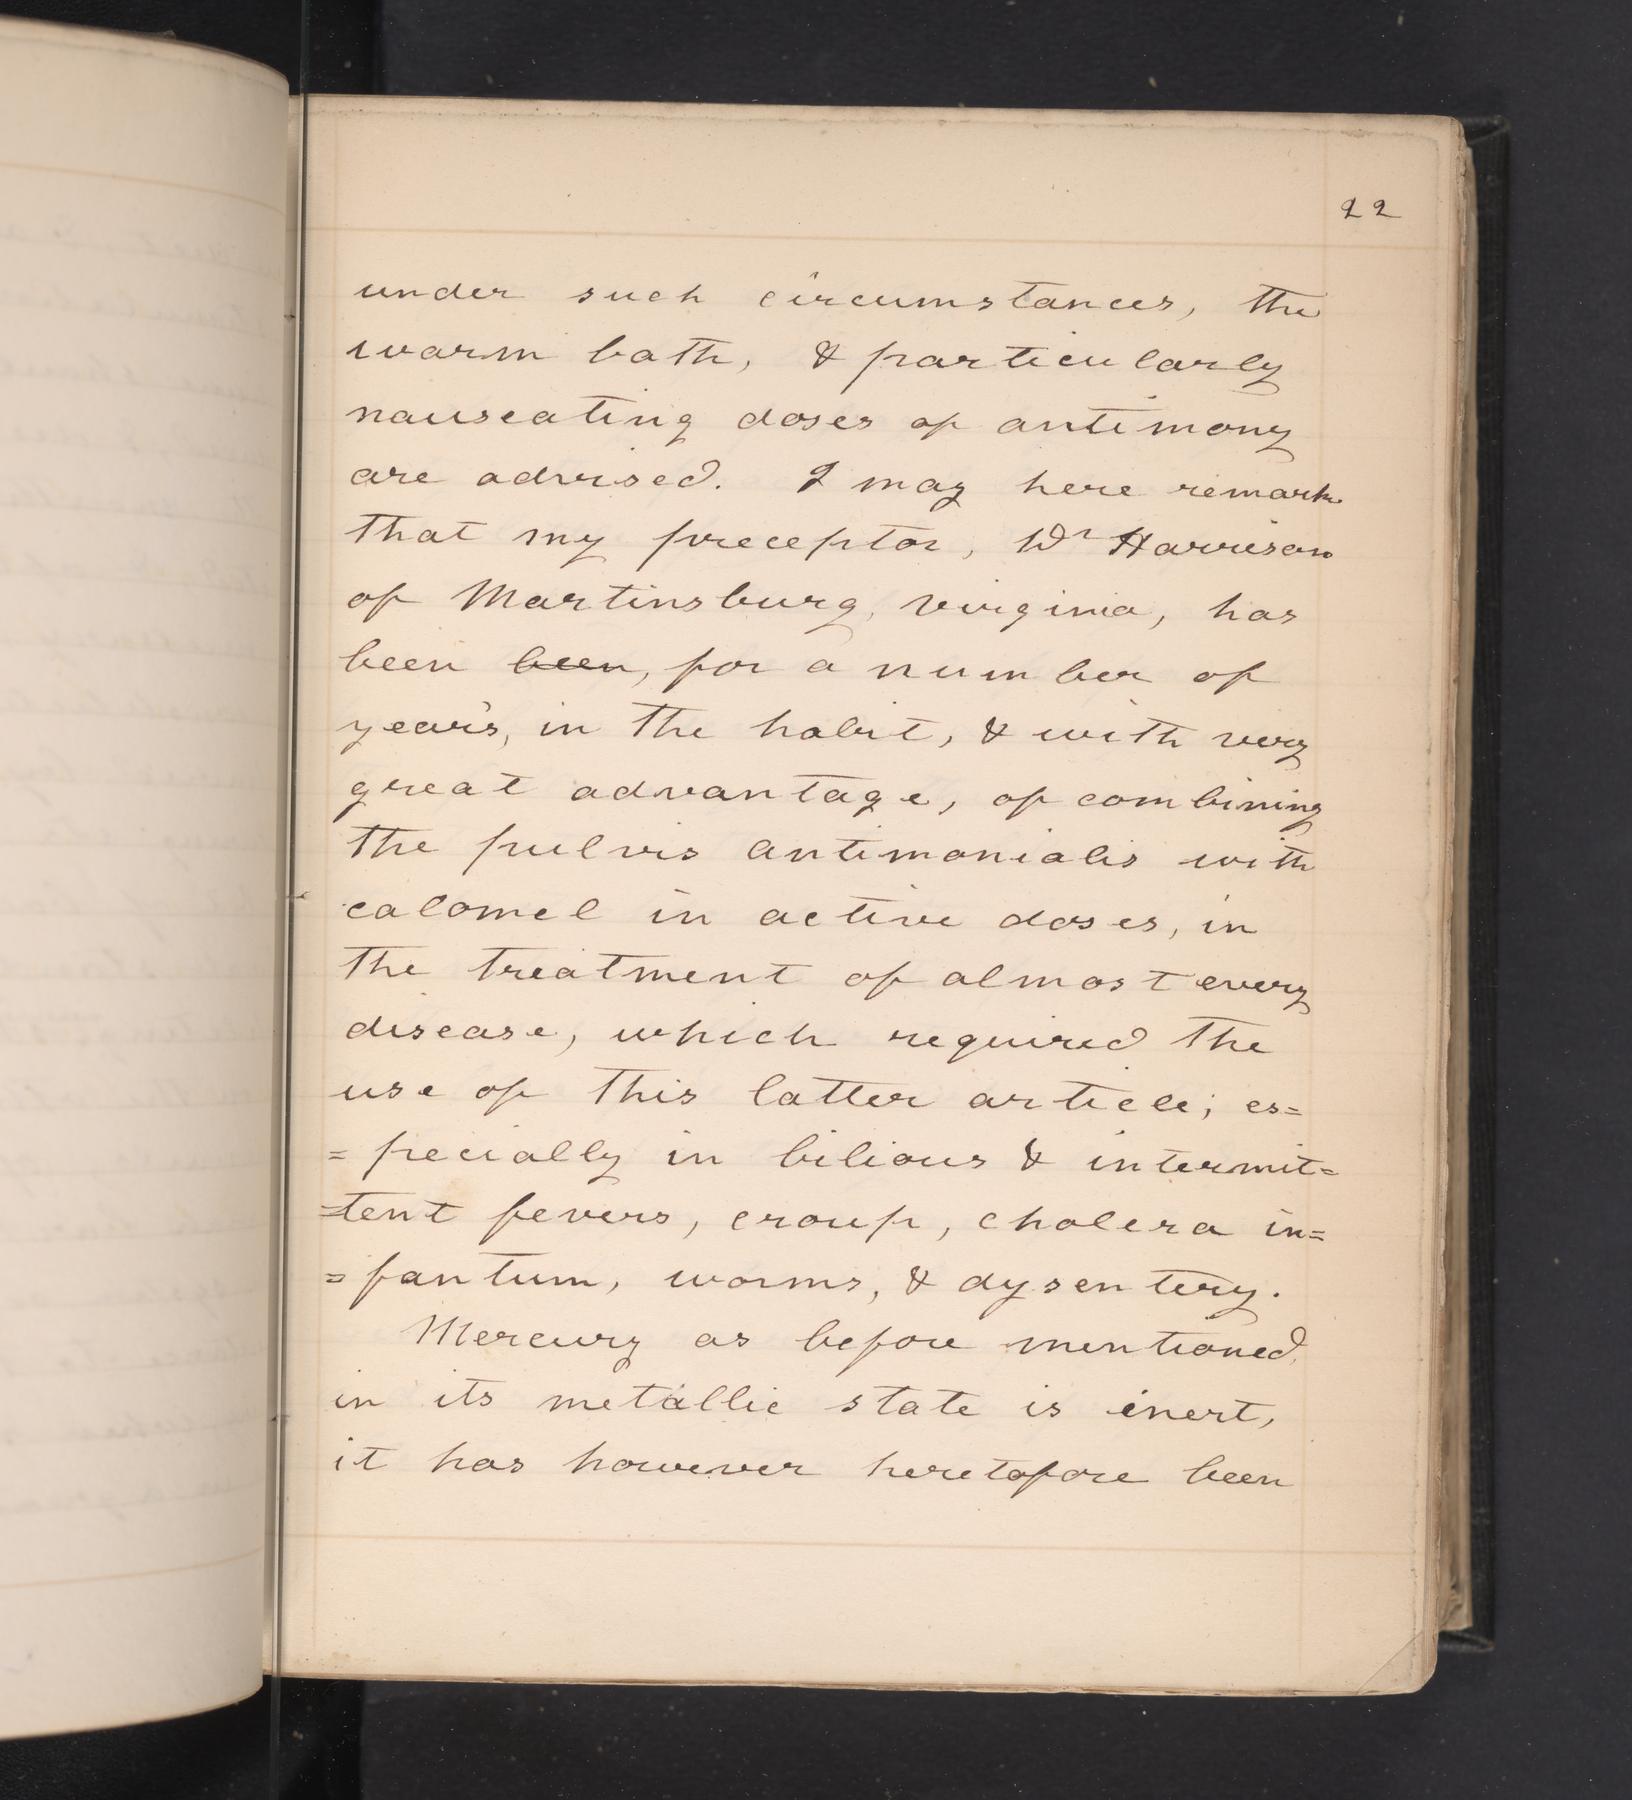 22
under such circumstances, the
warm bath, & particularly
nauseating doses of antimony
are advised. I may here remark
that my preceptor, Dr Harrison
of Martinsburg, Virginia, has
been been, for a number of
years, in the habit, & with very
great advantage, of combining
the pulvis antimonialis with
calomel in active doses, in
the treatment of almost every
disease, which required the
use of this latter article; es=
=pecially in bilious & intermit=
=tent fevers, croup, cholera in=
=fantum, worms, & dysentery.
Mercury as before mentioned,
in its metallic state is inert,
it has however heretofore been